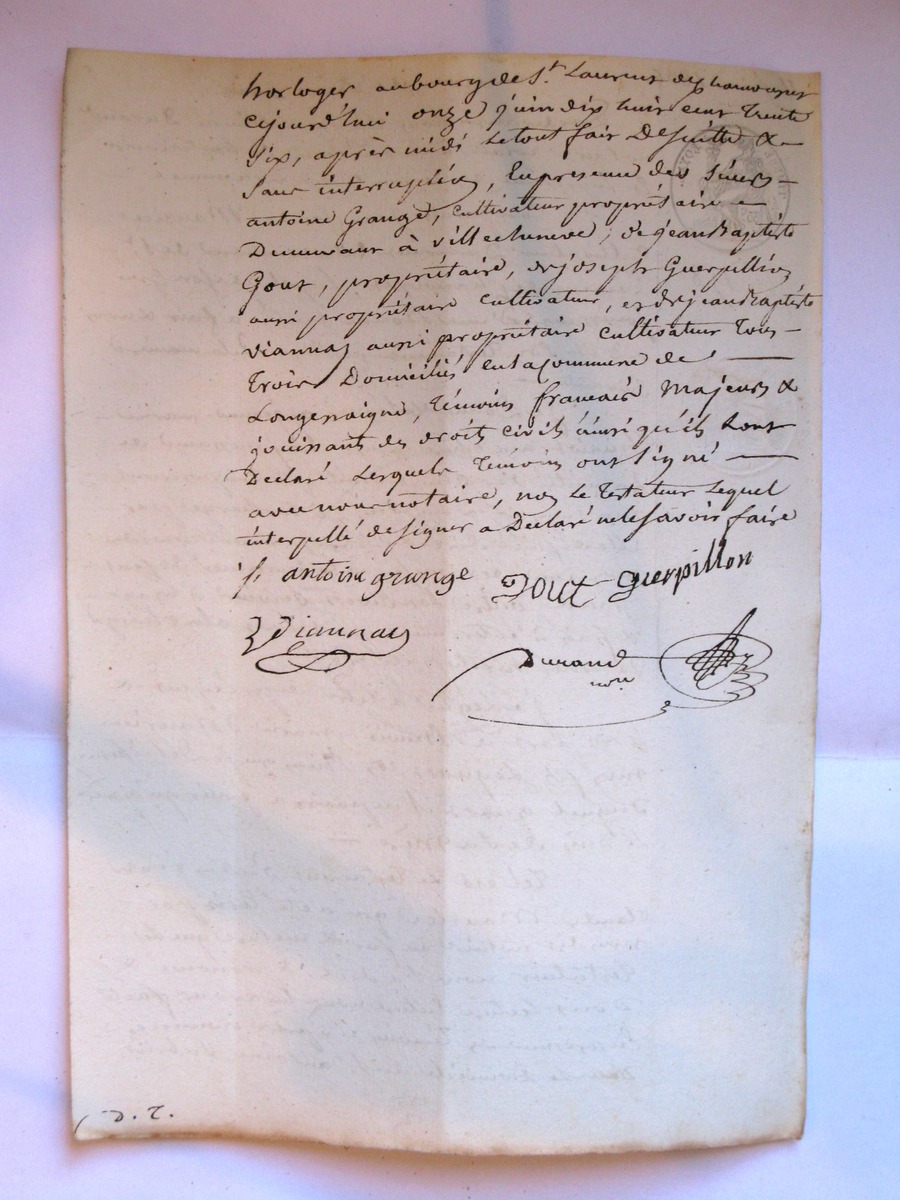 horloger au bourg de St. Laurent de chamousset
cejourd'hui onze juin dix huit cent trente
six, après midi le tout fait de suitte &
sans interruption, en presence des sieurs
antoine Grange, cultivateur propriétaire
Demeurant à villecheneve, de jean Baptiste
Gout, propriétaire, de joseph Guerpillon
aussi propriétaire cultivateur, et de jean Baptiste
viannay aussi propriétaire cultivateur tous
trois Domiciliés en la commune de
Longessaigne, témoins francais majeurs &
jouissant des droits civils ainsi qu'ils l'ont
Declaré lesquels témoins ont signé
avec nous notaire, non le testateur lequel
interpellé de signer a Declaré ne le savoir faire
antoine grange Gout guerpillon
Viannay
Durand
nore
D. T.